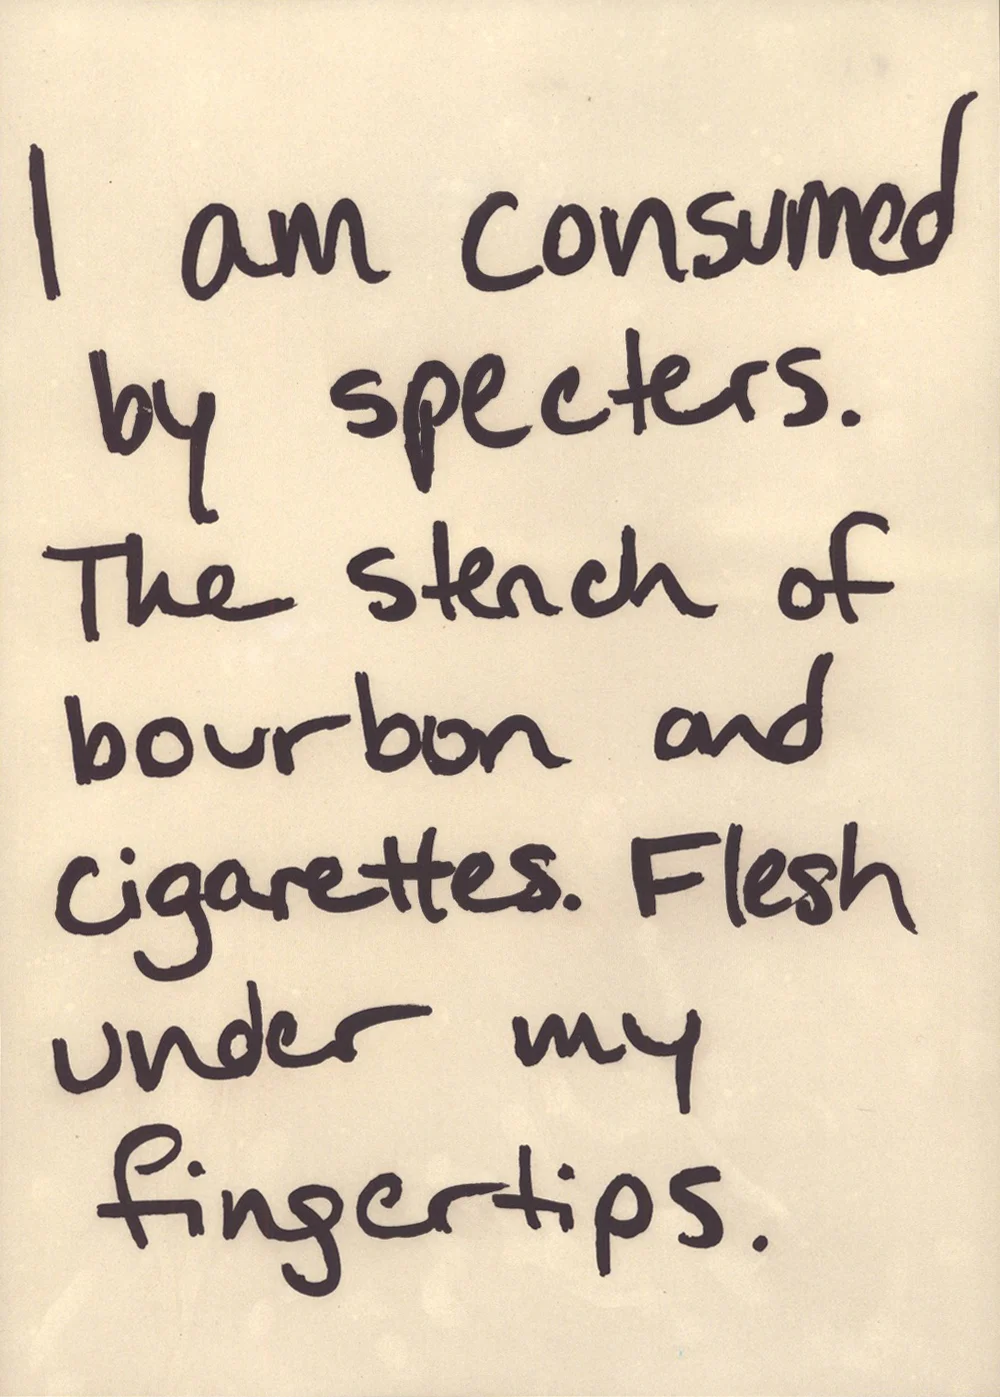 I am consumed
by specters.
The stench of
bourbon and
cigarettes. Flesh
under my
fingertips.